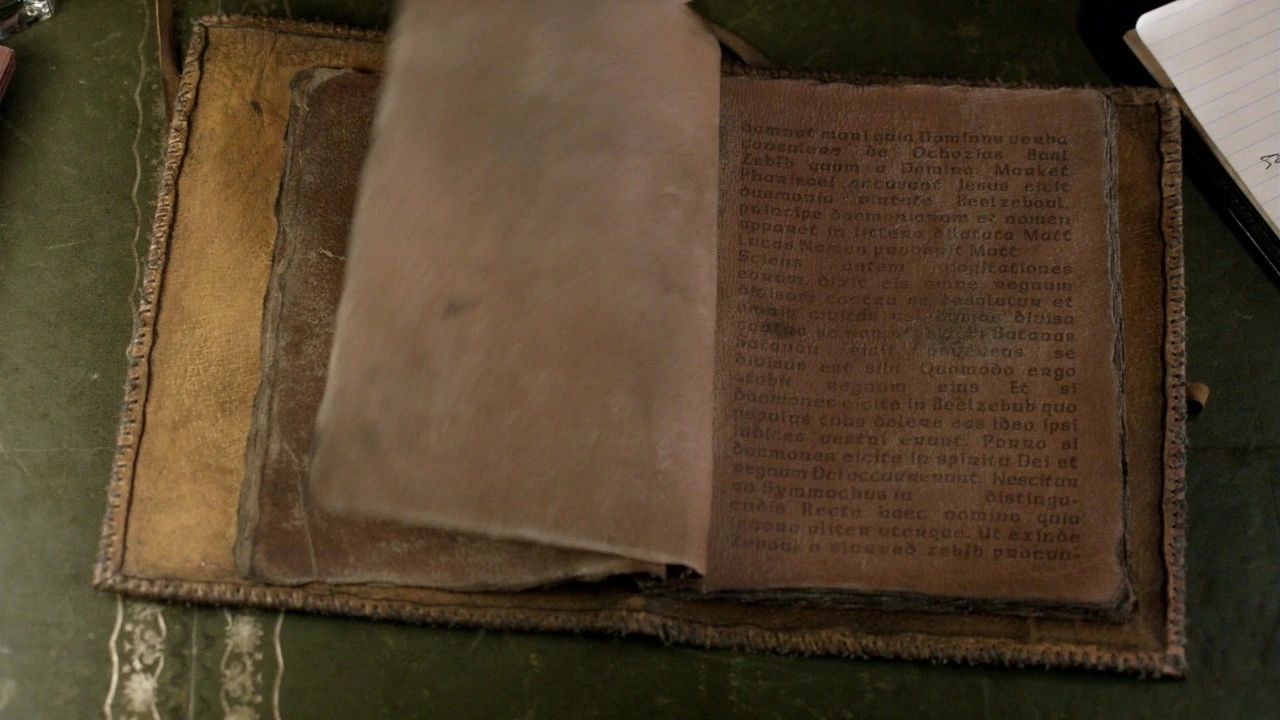 quia Dominus verba
consulere de Ochozias Baal
Zebib quam a Domino. Market
Pharisaei accusant Jesus eicit
daemonia virtute Beelzeboul,
principe daemoniorum et nomen
apparet in littera dilatata Matt
Lucas Nomen provenit Matt
Sciens autem cogitationes
eorum dixit eis omne regnum
divisum contra se desolatur et
omnis civitas divisa
contra se non Satanas
Satanan eicit se
divisus est sibi Quomodo ergo
stabit regnum eius Et si
daemones eicite in Beelzebub quo
populus tuus delere eos ideo ipsi
iudices vestri erunt. Porro si
daemones eicite in spiritu Dei et
regnum Dei occurrerunt. Nescitur
an Symmachus in distingu-
endis Recte haec nomina quia
ignoro aliter uterque. Ut exinde
a slurred zebib pronun-